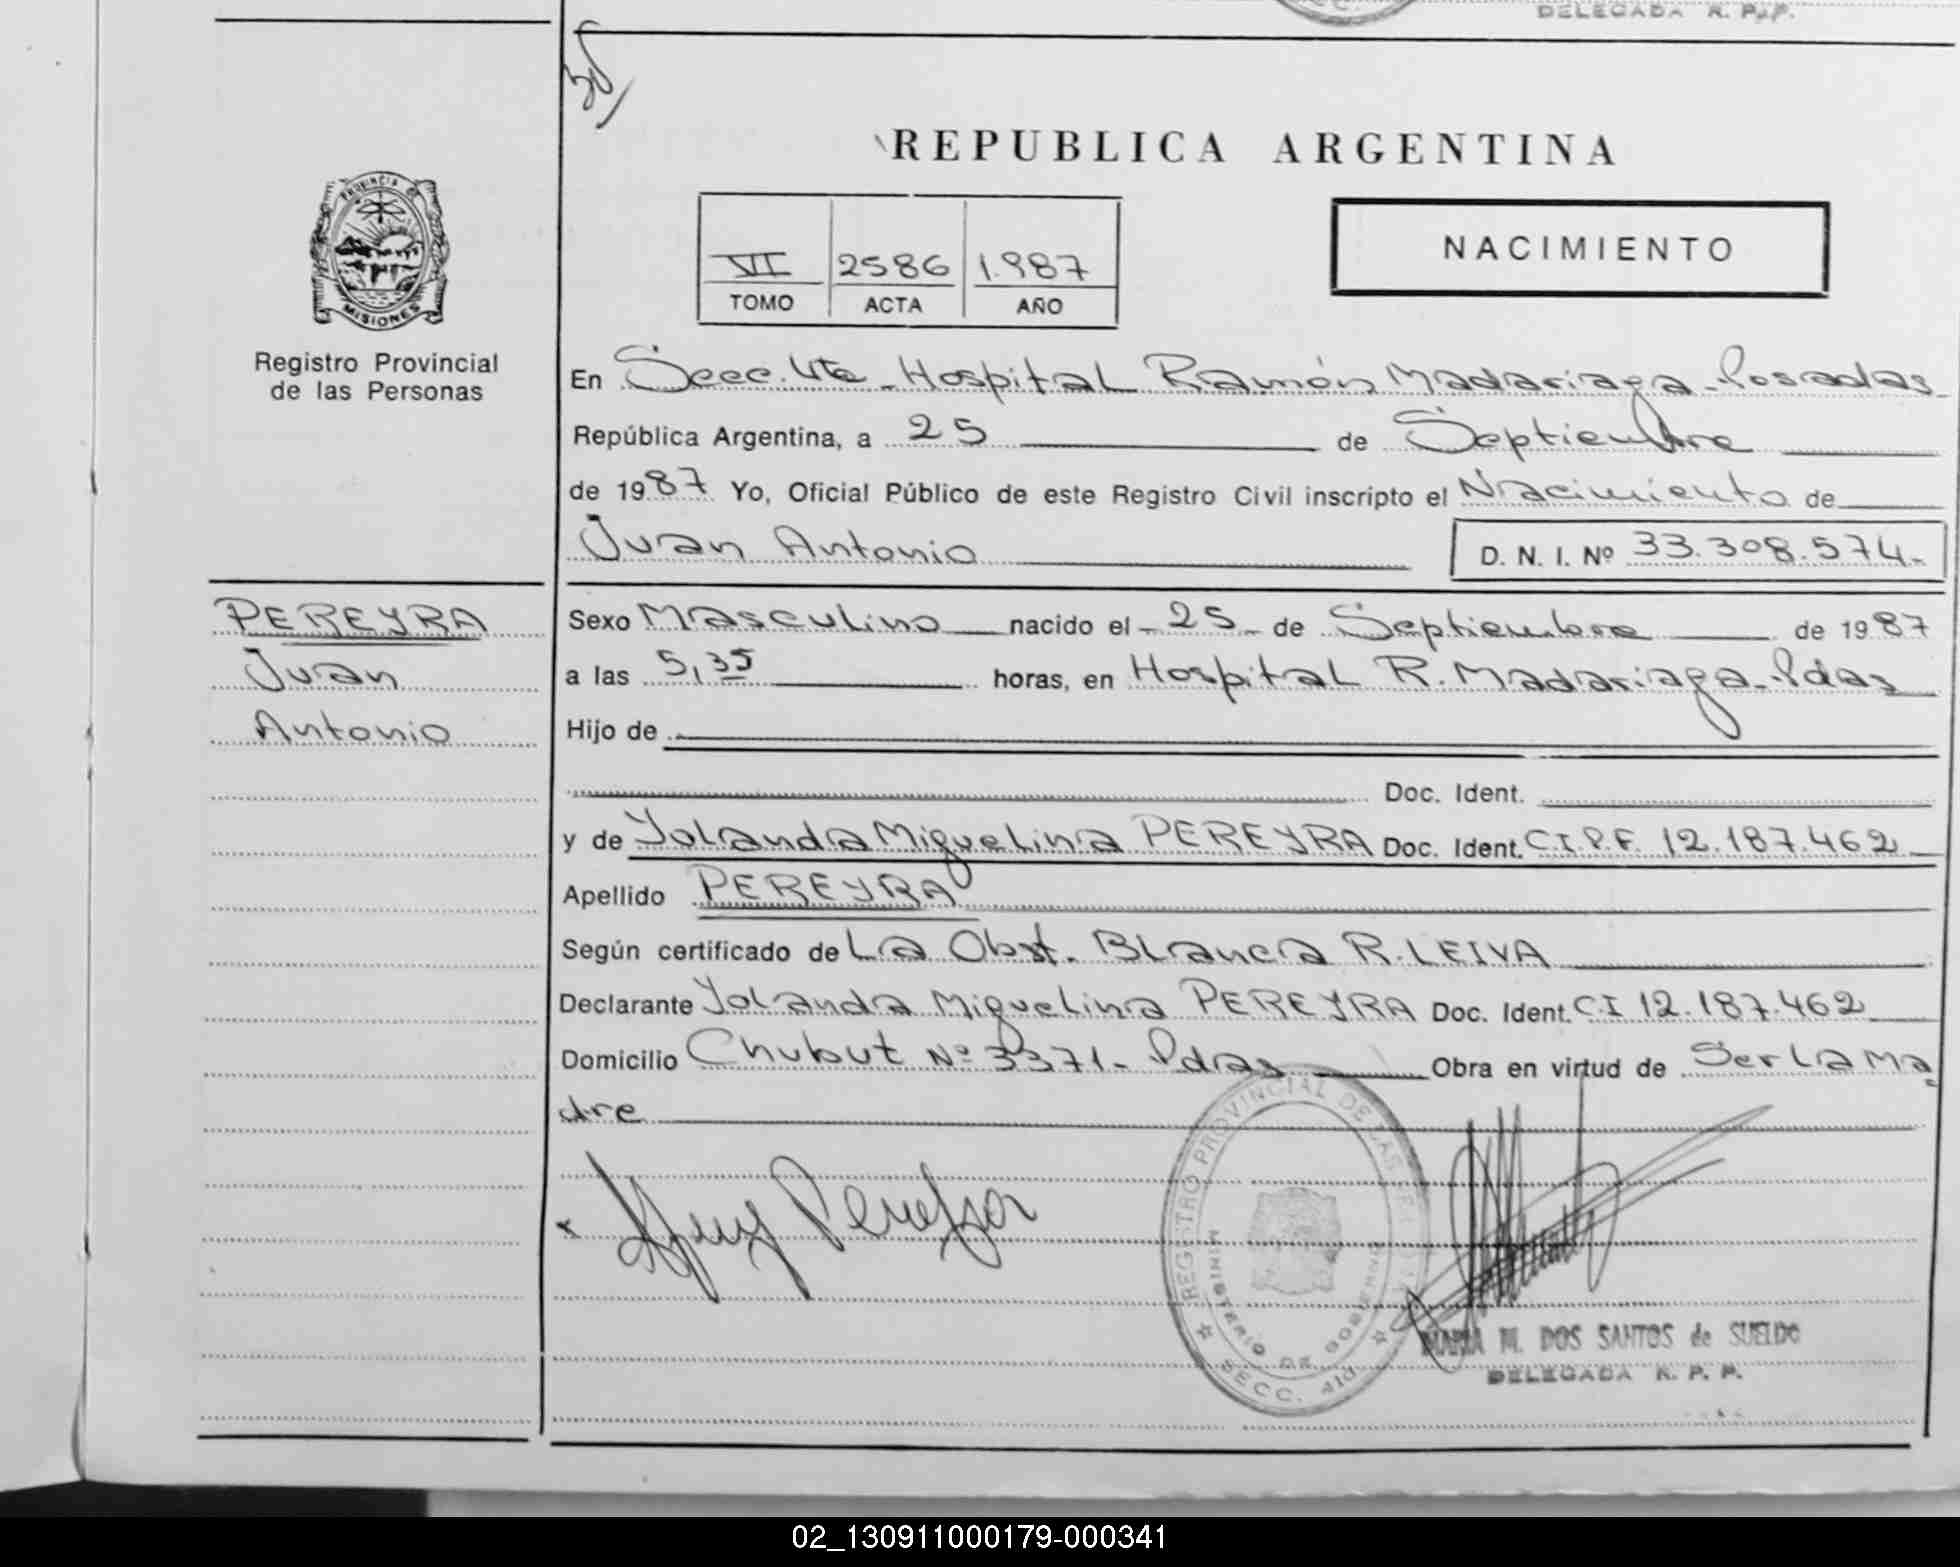 DELEGADA R. P. P.
REPUBLICA ARGENTINA
PROVINCIA DE
MISIONES
Registro Provincial
de las Personas
VII 2586 1.987
TOMO ACTA AÑO
NACIMIENTO
En Secc. 4ta - Hospital Ramón Madariaga - Posadas
República Argentina, a 25 de Septiembre
de 1987 Yo, Oficial Público de este Registro Civil inscripto el Nacimiento de
Juan Antonio D. N. I. Nº 33.308.574.-
PEREYRA
Juan
Antonio
Sexo Masculino nacido el - 25 - de Septiembre de 1987
a las 5,35 horas, en Hospital R. Madariaga - Pdas
Hijo de
Doc. Ident.
y de Yolanda Miguelina PEREYRA Doc. Ident. C.I P.F. 12.187.462
Apellido PEREYRA
Según certificado de La Obst. Blanca R. LEIVA
Declarante Yolanda Miguelina PEREYRA Doc. Ident. C.I 12.187.462
Domicilio Chubut Nº 3371 - Pdas Obra en virtud de Ser La Ma
dre
REGISTRO PROVINCIAL DE LAS PER
MINISTERIO DE GOBIERNO
SECC. 4ta
MARIA M. DOS SANTOS de SUELDO
DELEGADA R. P. P.
02_130911000179-000341